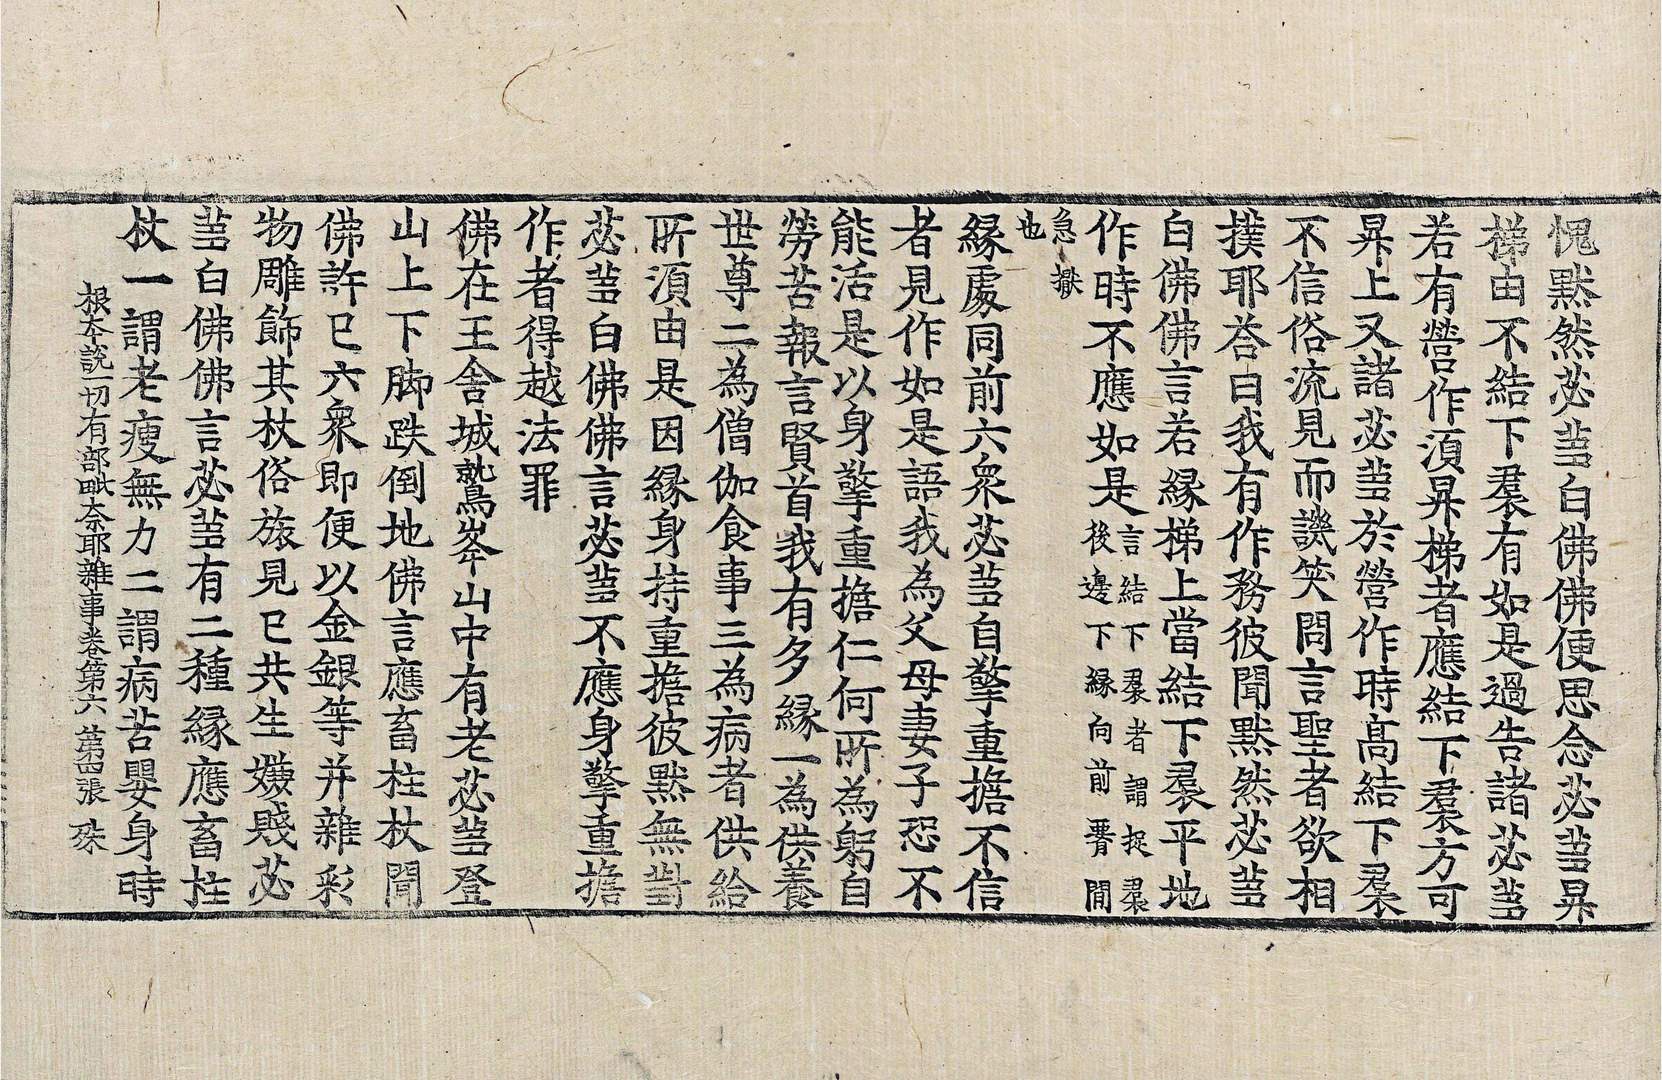 愧默然苾蒭白佛佛便思念苾蒭昇
梯由不結下裙有如是過告諸苾蒭
若有營作湏昇梯者應結下裙方可
昇上又諸苾蒭於營作時高結下裙
不信俗流見而譏笑問言聖者欲相
撲耶荅曰我有作務彼聞默然苾蒭
白佛佛言若縁梯上當結下裙平地
作時不應如是言結下裙者謂捉裙
後邊下縁向前䙅間
急擨
也
縁處同前六衆苾蒭自擎重擔不信
者見作如是語我為父母妻子恐不
能活是以身擎重擔仁何所為躬自
勞苦報言賢首我有多縁一為供養
世尊二為僧伽食事三為病者供給
所湏由是因縁身持重擔彼默無對
苾蒭白佛佛言苾蒭不應身擎重擔
作者得越法罪
佛在王舍城鷲峯山中有老苾蒭登
山上下脚跌倒地佛言應畜柱杖聞
佛許已六衆即便以金銀等并雜彩
物雕飾其杖俗旅見已共生嫌賤苾
蒭白佛佛言苾蒭有二種縁應畜柱
杖一謂老瘦無力二謂病苦嬰身時
根本說一切有部毗奈耶雜事卷第六 第㽬張 殊